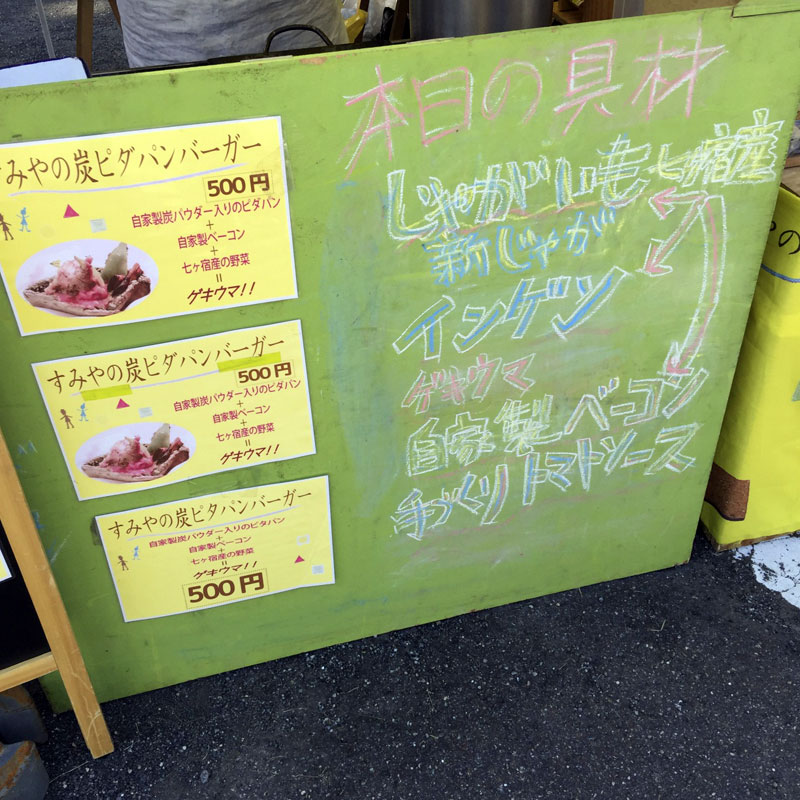 すみやの炭ピダパンバーガー
500円
自家製炭パウダー入りのピダパン
+
自家製ベーコン
+
七ヶ宿産の野菜
=
ゲキウマ!!
すみやの炭ピダパンバーガー
500円
自家製炭パウダー入りのピダパン
+
自家製ベーコン
+
七ヶ宿産の野菜
=
ゲキウマ!!
すみやの炭ピタパンバーガー
自家製炭パウダー入りのピダパン
+
自家製ベーコン
+
七ヶ宿産の野菜
=
ゲキウマ!!
500円
本日の具材
じゃがいも 七ヶ宿産
新じゃが
インゲン
ゲキウマ
自家製ベーコン
手づくりトマトソース